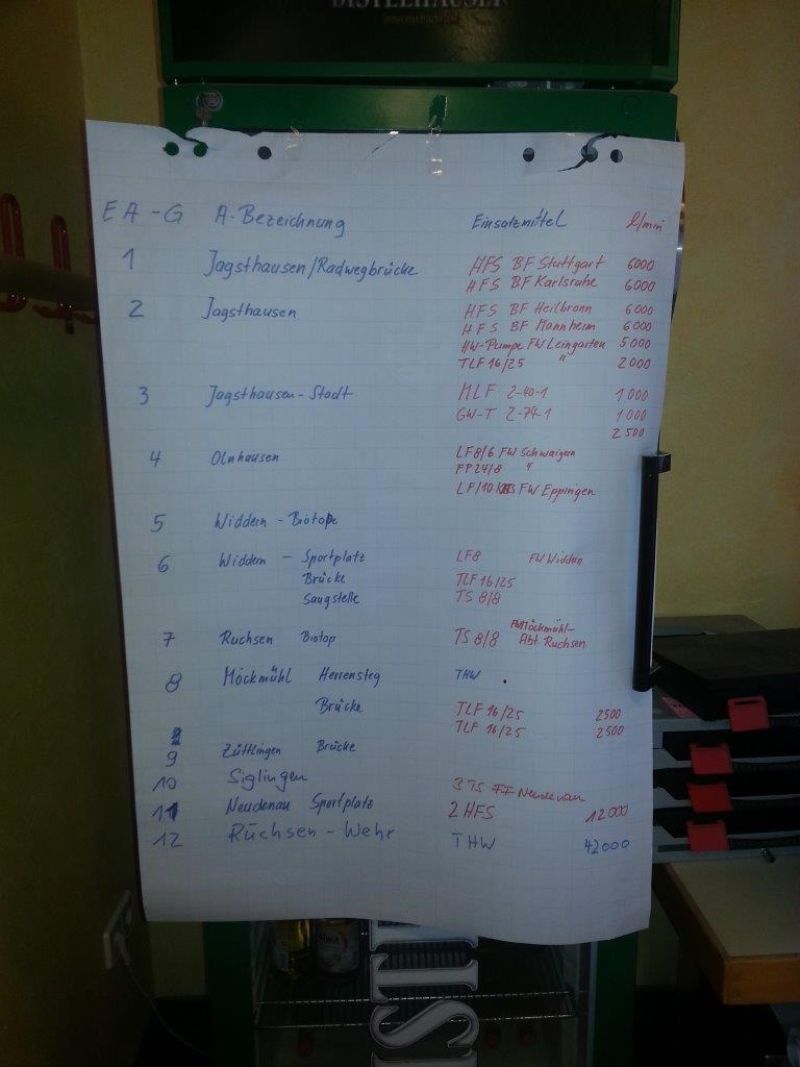 DISTELHÄUSER
EA-G A-Bezeichnung Einsatzmittel l/min
1 Jagsthausen/Radwegbrücke HFS BF Stuttgart 6000
HFS BF Karlsruhe 6000
2 Jagsthausen HFS BF Heilbronn 6000
HFS BF Mannheim 6000
HW-Pumpe FW Leingarten 5000
TLF 16/25 " 2000
3 Jagsthausen-Stadt MLF 2-40-1 1000
GW-T 2-74-1 1000
2500
4 Olnhausen LF8/6 FW Schwaigern
FP24/8 "
LF/10 FW Eppingen
5 Widdern - Biotope
6 Widdern - Sportplatz LF8 FW Widdern
Brücke TLF 16/25
Saugstelle TS 8/8
7 Ruchsen Biotop TS 8/8 FW Möckmühl-
Abt Ruchsen
8 Möckmühl Herrensteg THW
Brücke TLF 16/25 2500
TLF 16/25 2500
9 Züttlingen Brücke
10 Siglingen 3 TS FF Neudenau
11 Neudenau Sportplatz 2 HFS 12000
12 Rüchsen-Wehr THW 42000